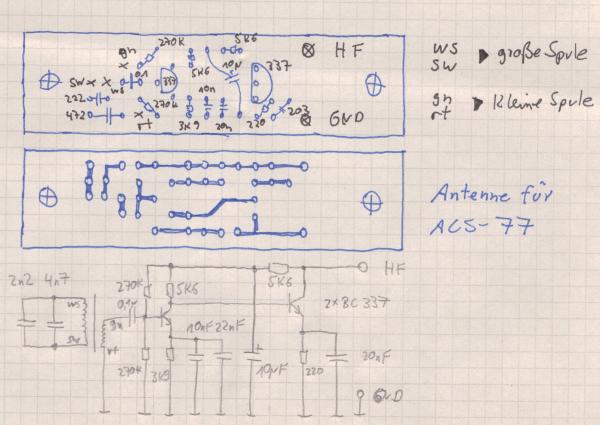 270K
5K6
gn
5K6
10µ
337
HF
SW
ws
0,1
337
222
472
270K
10n
rt
3K9
20n
220
203
GND
ws
sw
große Spule
gn
rt
Kleine Spule
Antenne für
ACS-77
2n2 4n7
ws
sw
gn
rt
0,1µ
270K
5K6
5K6
HF
2xBC 337
10nF 22nF
270K
3K9
10µF
220
20nF
GND